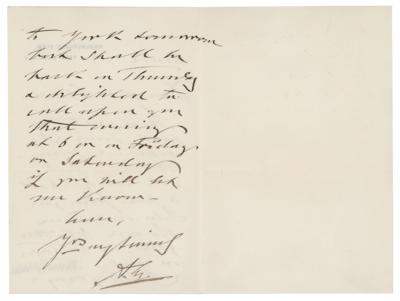 to York tomorrow
but shall be
back on Thursday
& delighted to
call upon you
that evening
at 6 or on Friday
or Saturday
if you will let
me know
here,
Yrs